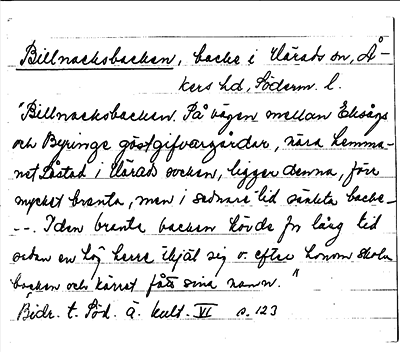 Billnacksbacken, backe i Härads sn, Å-
kers hd, Söderm. l.
"Billnacksbacken. På vägen mellan Eksågs
och Byringe gästgifvargårdar, nära hemma-
net Låstad i Härads socken, ligger denna, förr
mycket branta, men i sednare tid sänkta backe
--. I den branta backen körde för lång tid
sedan en hög herre ihjäl sig o. efter honom skola
backen och kärret fått sina namn."
Bidr. t. Söd. ä. kult. VI s. 123